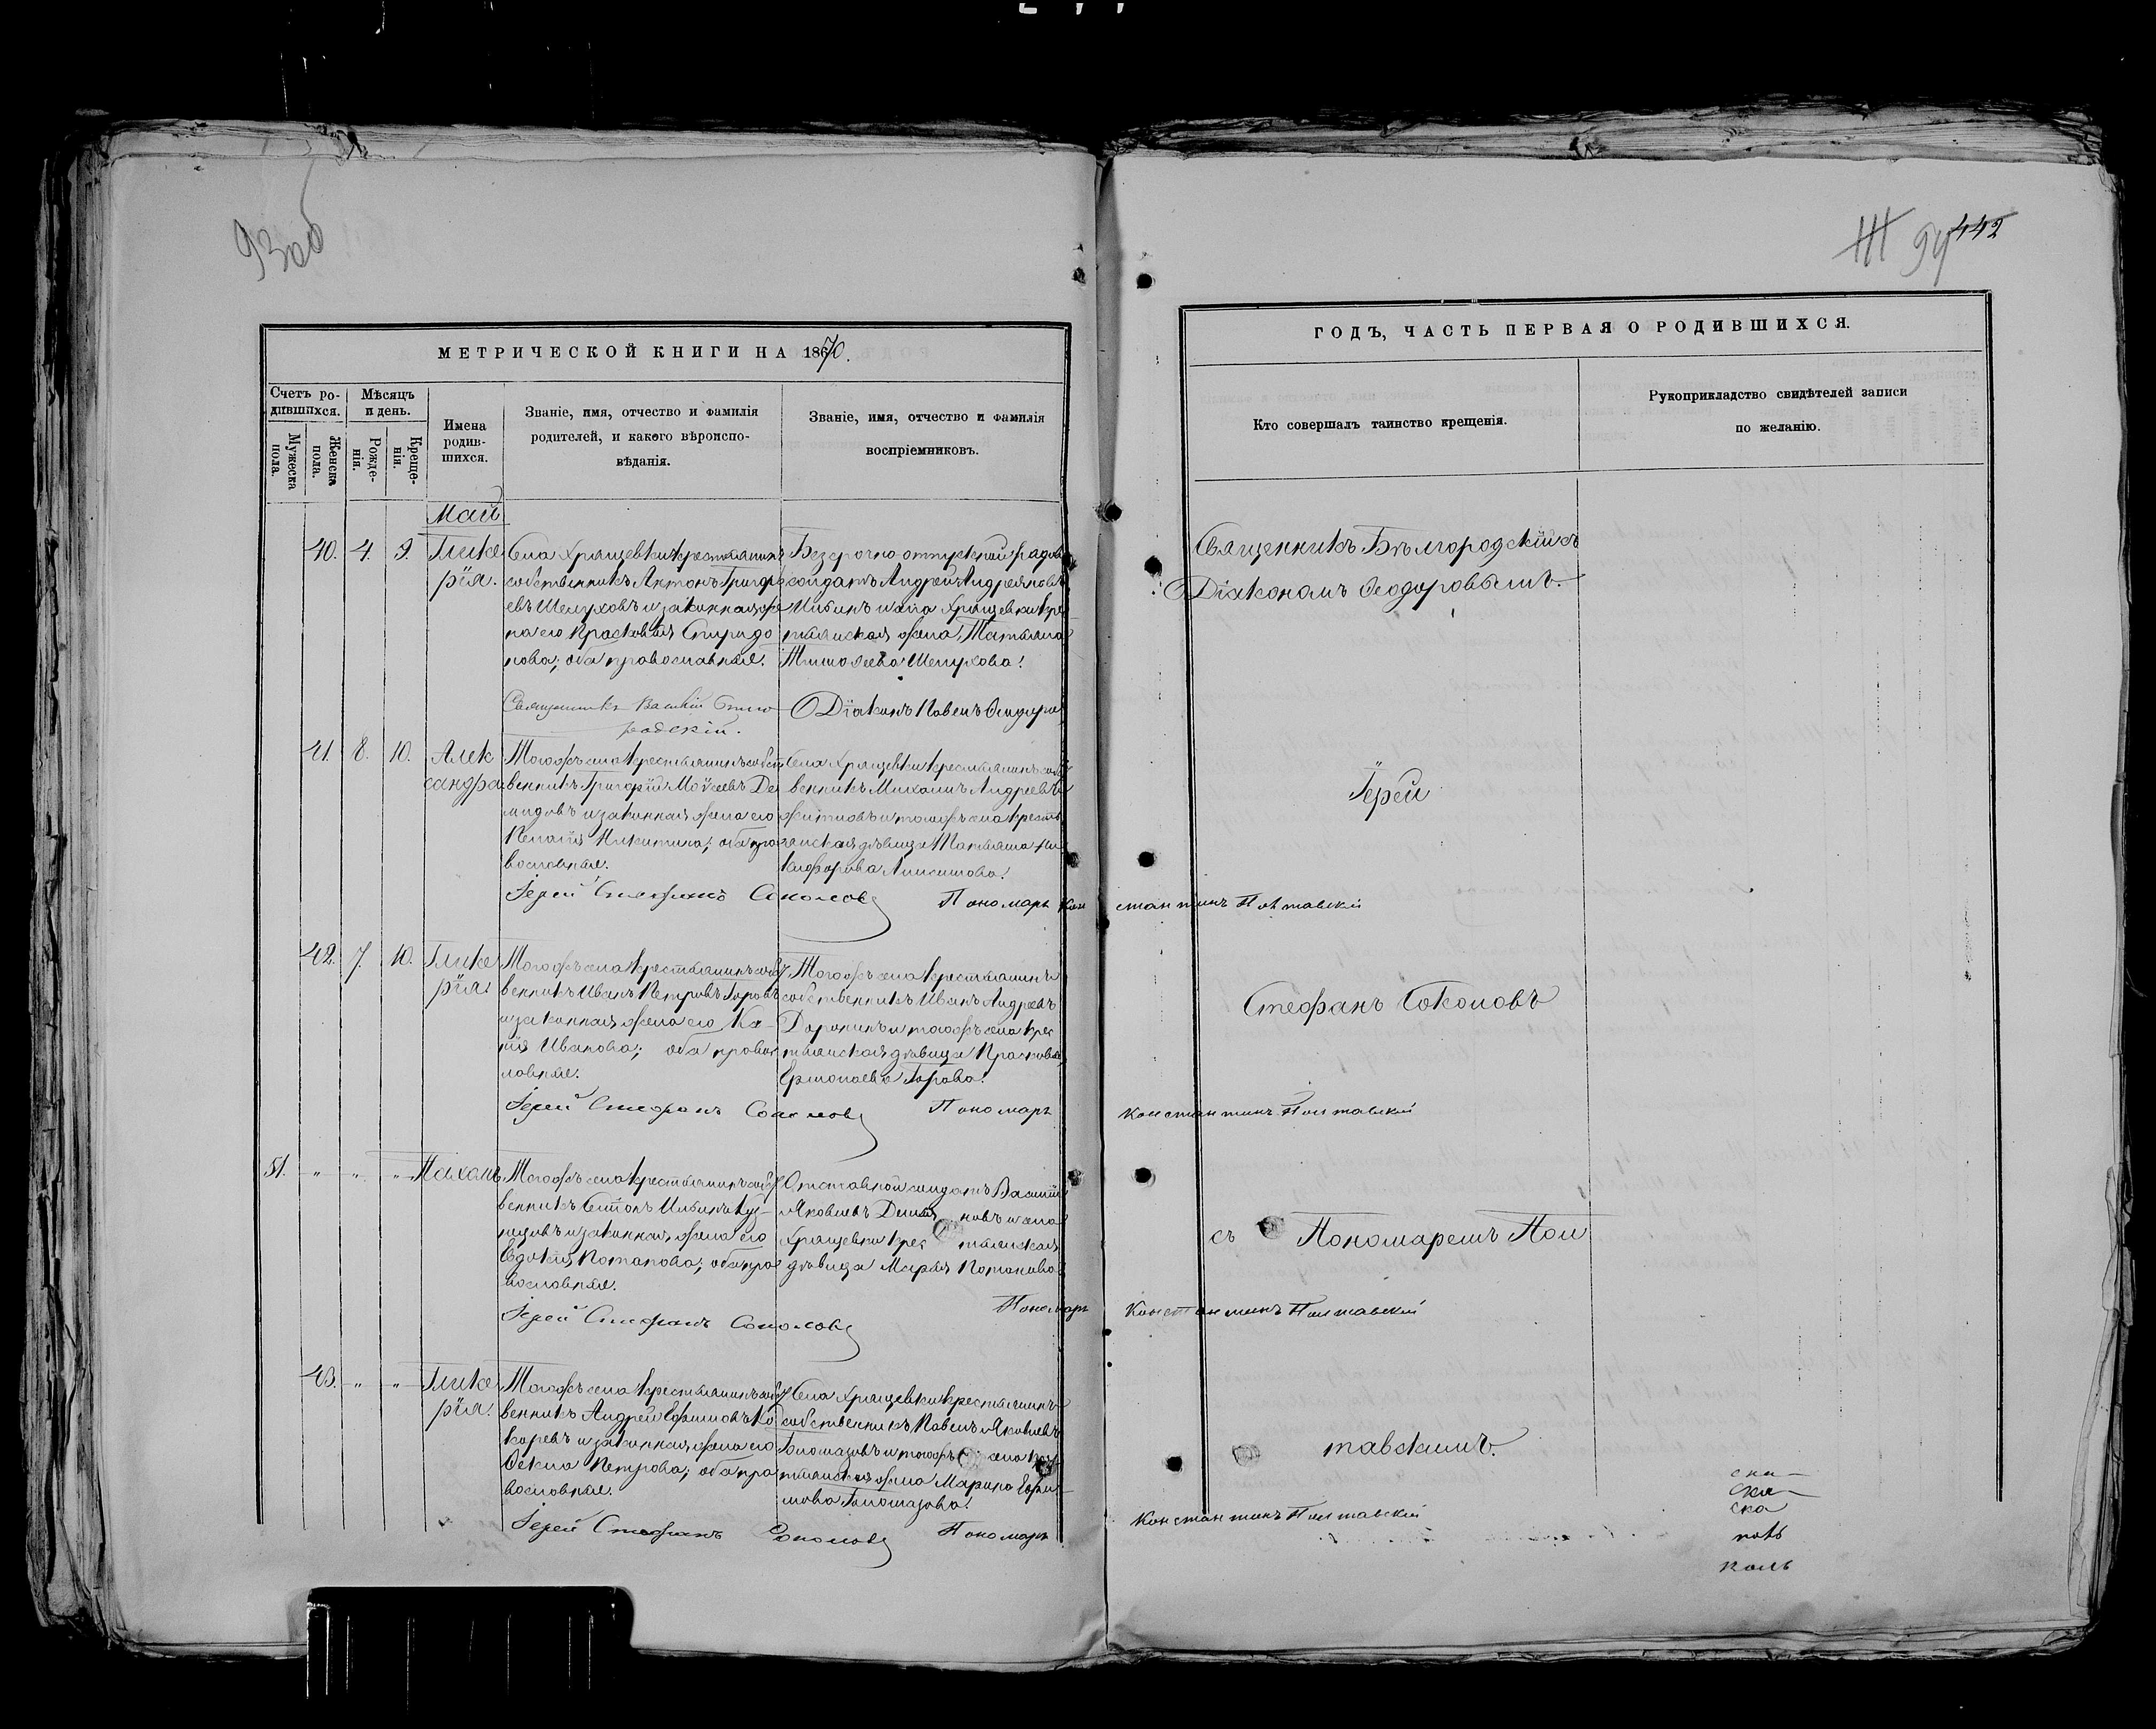 93об
442
94
МЕТРИЧЕСКОЙ КНИГИ НА 1870.
Счетъ ро-
дившихся.
Мужеска
пола.
Женска
пола.
Мѣсяцъ
и день.
Рожде-
нія.
Креще-
нія.
Имена
родив-
шихся.
Званіе, имя, отчество и фамилія
родителей, и какого вѣроиспо-
вѣданія.
Званіе, имя, отчество и фамилія
воспріемниковъ.
Май
40. 4. 9. Глике
рія.
Села Хрящевки крестьянинъ
собственникъ Антонъ Григорь
евъ Шелуховъ и законная же
на его Красковія Спиридо
нова; оба православные.
Безсрочно-отпускной рядов
солдатъ Андрей Андреяновъ
и села Хрящевки кре
стьянская жена Татьяна
Тимофеева Шелухова.
Священникъ Василій Бѣлго
родскій.
Діаконъ Павелъ Ѳеодоро
41. 8. 10. Алек
сандра
Тогожъ села крестьянинъ собст
венникъ Григорій Моѵсеевъ Де
мидовъ и законная жена его
Пелагія Никитина; оба пра
вославные.
Села Хрящевки крестьянинъ собст
венникъ Михаилъ Андреевъ
и тогожъ села кресть
янская дѣвица Татьяна Ни
кифорова Анисимова.
Іерей Стефанъ Соколовъ
Пономарь Константинъ Полтавскій
42. 7. 10. Глике
рія.
Тогожъ села крестьянинъ собст
венникъ Иванъ Петровъ Горовъ
и законная жена его Ка-
пія Иванова; оба правос
лавные.
Тогожъ села крестьянинъ
собственникъ Иванъ Андреевъ
Доронинъ и тогожъ села крес
тьянская дѣвица Прасковья
Ермолаева Горова.
Іерей Стефанъ Соколовъ
Пономарь Константинъ Полтавскій
51. " " " Пахомъ
Тогожъ села крестьянинъ собст
венникъ Куз-
нецовъ и законная жена его
Евдокія Потапова; оба пра
вославные.
Отставной солдатъ Василій
Яковлевъ Демьяновъ и села
Хрящевки крестьянская
дѣвица Марья Потапова
Іерей Стефанъ Соколовъ
Пономарь Константинъ Полтавскій
43. " " Глике
рія.
Тогожъ села крестьянинъ собст
венникъ Андрей Ефимовъ Ко
каревъ и законная жена его
Ѳекла Петрова; оба пра
вославные.
Села Хрящевки крестьянинъ
собственникъ Павелъ Яковлевъ
Бѣлоглазовъ и тогожъ села крес
тьянская жена Марина Ефи
мова Бѣлоглазова.
Іерей Стефанъ Соколовъ
Пономарь Константинъ Полтавскій
ГОДЪ, ЧАСТЬ ПЕРВАЯ О РОДИВШИХСЯ.
Кто совершалъ таинство крещенія.
Рукоприкладство свидѣтелей записи
по желанію.
Священникъ Бѣлгородскій съ
Діакономъ Ѳеодоровымъ.
Іерей
Стефанъ Соколовъ
съ Пономаремъ Пол
тавскимъ.